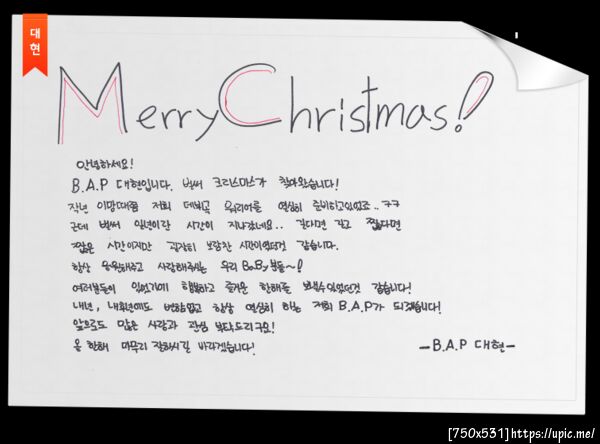 대현
Merry Christmas!
안녕하세요!
B.A.P 대현입니다. 벌써 크리스마스가 찾아왔습니다!
작년 이맘때쯤 저희 데뷔곡 워리어를 열심히 준비하고있었죠..ㅋㅋ
근데 벌써 일년이란 시간이 지나갔네요.. 길다면 길고 짧다면
짧은 시간이지만 굉장히 보람찬 시간이었던것 같습니다.
항상 응원해주고 사랑해주시는 우리 BaBy분들~!
여러분들이 있었기에 행복하고 즐거운 한해를 보낼수있었던것 같습니다!
내년, 내후년에도 변함없고 항상 열심히 하는 저희 B.A.P가 되겠습니다!
앞으로도 많은 사랑과 관심 부탁드리구요!
올 한해 마무리 잘하시길 바라겠습니다!
-B.A.P 대현-
[750x531]https://upic.me/